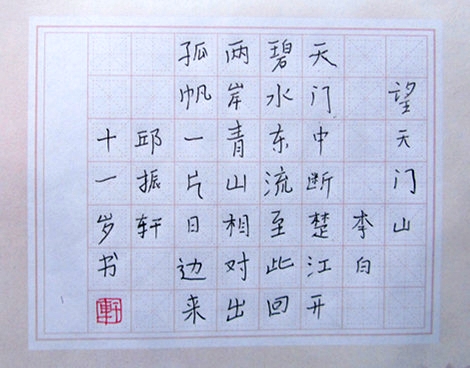 望天门山
李白
天门中断楚江开
碧水东流至此回
两岸青山相对出
孤帆一片日边来
邱振轩
十一岁书
軒